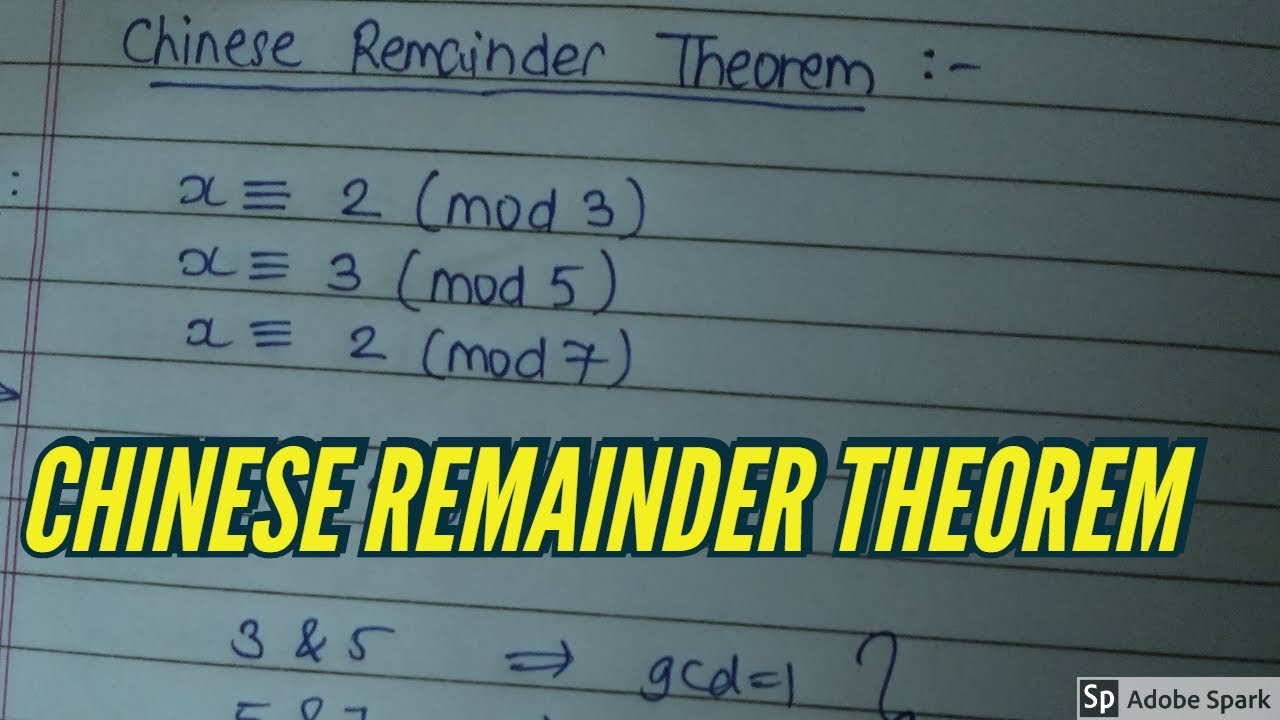 Chinese Remainder Theorem :-
:
x ≡ 2 (mod 3)
x ≡ 3 (mod 5)
x ≡ 2 (mod 7)
CHINESE REMAINDER THEOREM
3 & 5 ⇒ gcd=1
Sp Adobe Spark